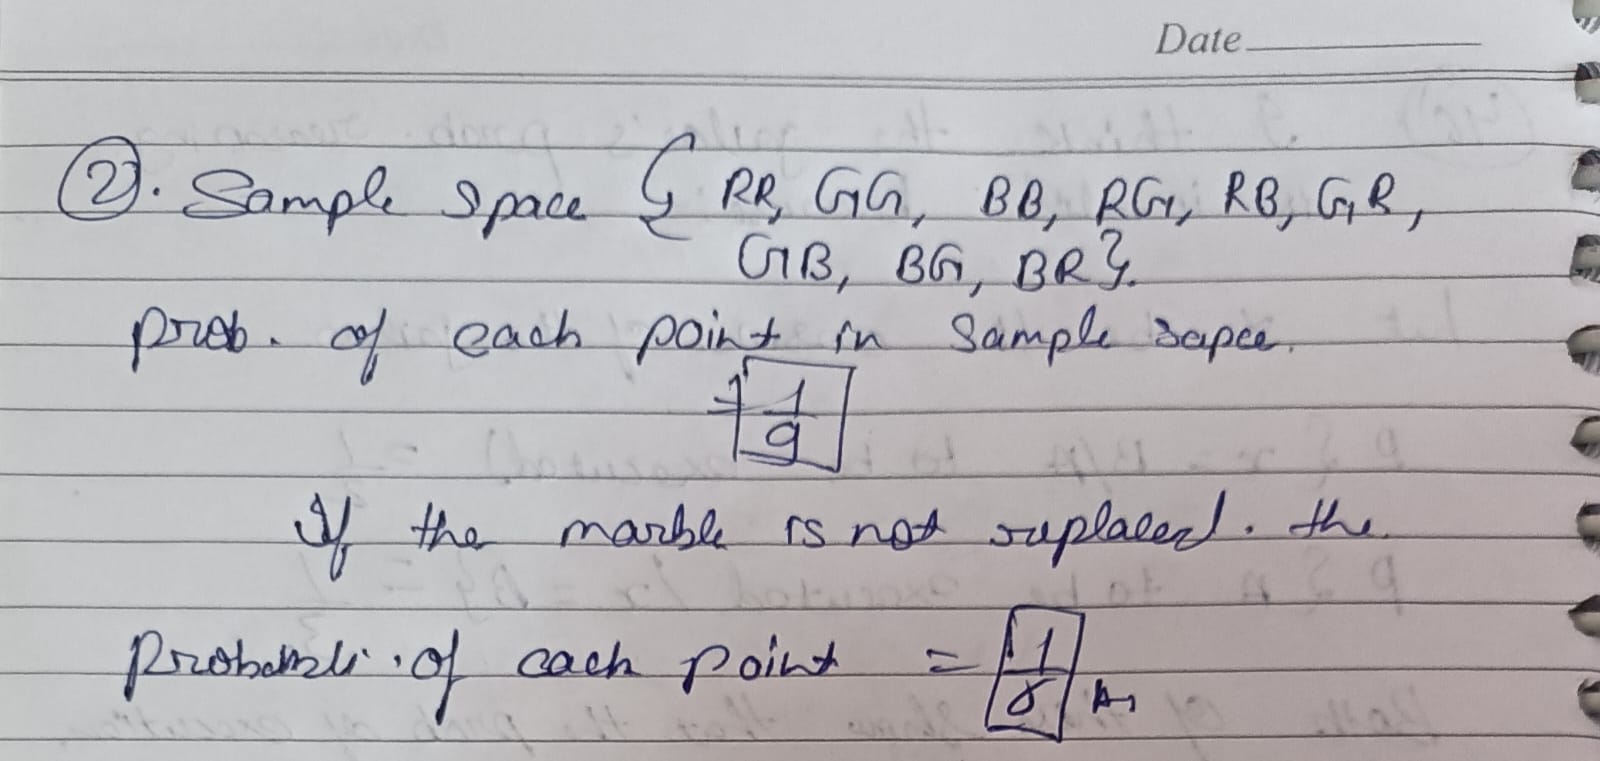 Date
②. Sample space { RR, GG, BB, RG, RB, GR,
GB, BG, BR}.
prob. of each point in Sample sapce.
= 1/9
If the marble is not replaced. the
Probabili. of each point = 1/8